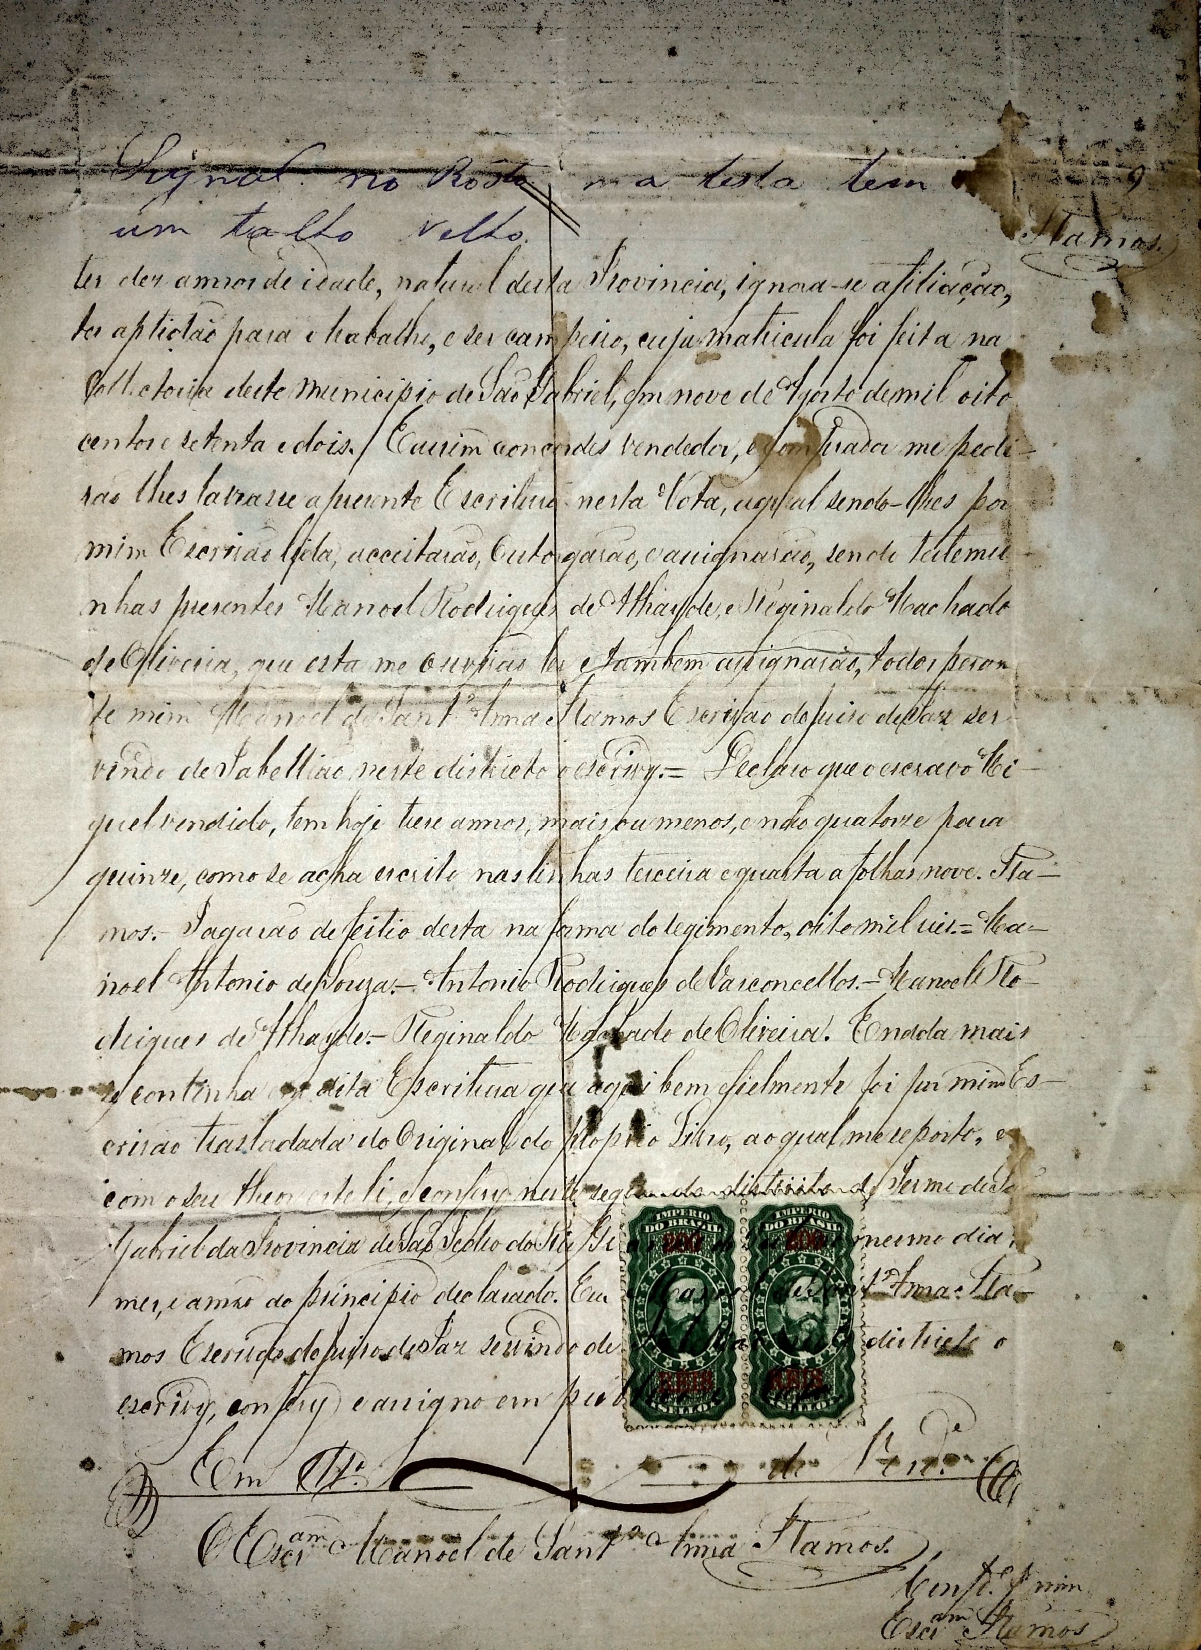 Signal no Rosto na testa tem
um talho velho.
9
Ramos.
ter dez annos de idade, natural desta Provincia, ignora-se a filiação,
ter aptidão para o trabalho, e ser campeiro, cuja matricula foi feita na
Collectoria deste Municipio de São Gabriel, em nove de Agosto de mil oito
centos e setenta e dois. / E assim concordes vendedor, e comprador me pedi-
rão lhes lavrasse a presente Escritura nesta Nota, a qual sendo-lhes por
mim Escrivão lida, acceitarão, outorgarão, e assignarão, sendo testemu-
nhas presentes Manoel Rodrigues de Athayde, e Reginaldo Machado
de Oliveira, que esta me ouvirão ler e tambem assignarão, todos peran
te mim Manoel de Sant'Anna Ramos Escrivão do juizo de Paz ser
vindo de Tabellião neste districto o escrivy.= Declaro que o escravo Mi-
guel vendido, tem hoje treze annos, mais ou menos, e não quatorze para
quinze, como se acha escrito nas linhas terceira e quarta a folhas nove. Ra-
mos.- Pagarão de feitio desta na forma do regimento, oito mil reis.= Ma-
noel Antonio de Souza.- Antonio Rodrigues de Vasconcellos.- Manoel Ro-
drigues de Athayde.- Reginaldo Machado de Oliveira. E nada mais
se continha em dita Escritura que aqui bem fielmente foi por mim Es-
crivão trasladada do Original do proprio Livro, ao qual me reporto, e
com o seu theor este li, e confery neste segundo districto do Termo de São
Gabriel da Provincia de São Pedro do Rio Gr mesmo dia
mez, e anno ao principio declarado. Eu Manoel de Sant'Anna Ra-
mos Escrivão do juizo de Paz servindo de districto o
escrivy, confery e assigno em pub
IMPERIO DO BRAZIL
200
REIS
SELLO
IMPERIO DO BRASIL
200
REIS
SELLO
Em de
O Escr.am Manoel de Sant'Anna Ramos.
Conf.e p mim
Escr.am Ramos